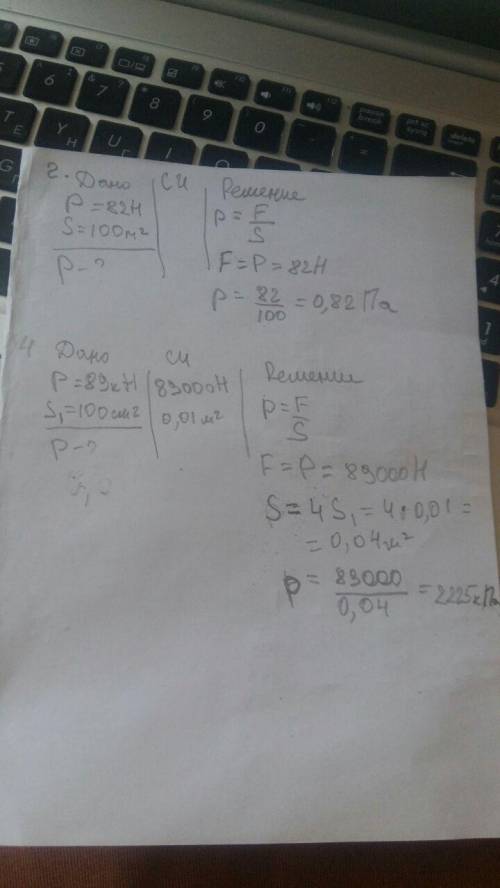 2. Дано СИ Решение
P = 82Н
S = 100м²
P - ?
p = F/S
F = P = 82Н
p = 82/100 = 0,82 Па
4 Дано СИ Решение
P = 89кН 89000Н
S₁ = 100см² 0,01м²
P - ?
p = F/S
F = P = 89000Н
S = 4S₁ = 4·0,01 =
= 0,04м²
p = 89000/0,04 = 2225кПа